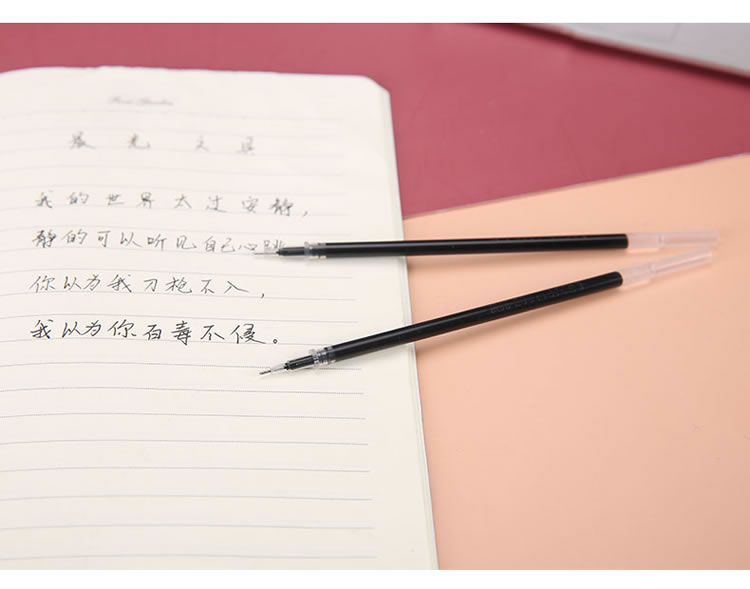 晨光文具
我的世界太过安静，
静的可以听见自己心跳
你以为我刀枪不入，
我以为你百毒不侵。